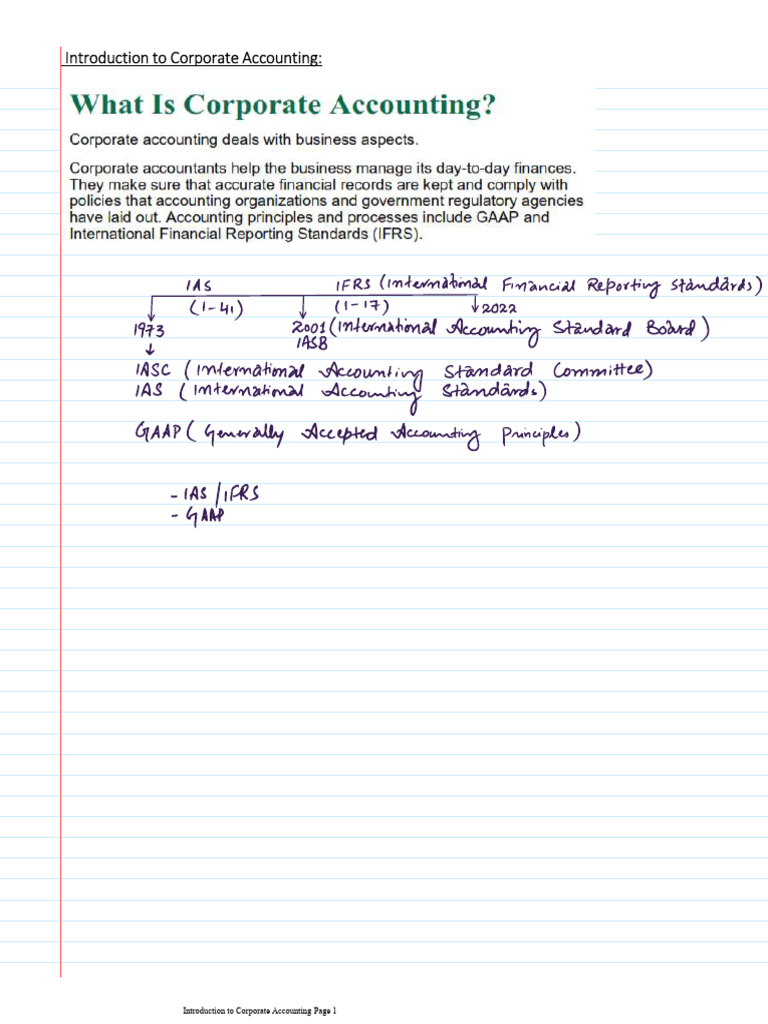 Introduction to Corporate Accounting:
What Is Corporate Accounting?
Corporate accounting deals with business aspects.
Corporate accountants help the business manage its day-to-day finances.
They make sure that accurate financial records are kept and comply with
policies that accounting organizations and government regulatory agencies
have laid out. Accounting principles and processes include GAAP and
International Financial Reporting Standards (IFRS).
IAS IFRS (International Financial Reporting Standards)
(1-41) (1-17) 2022
1973 2001 (International Accounting Standard Board)
IASB
IASC (International Accounting Standard Committee)
IAS (International Accounting Standards)
GAAP (Generally Accepted Accounting Principles)
- IAS/IFRS
- GAAP
Introduction to Corporate Accounting Page 1